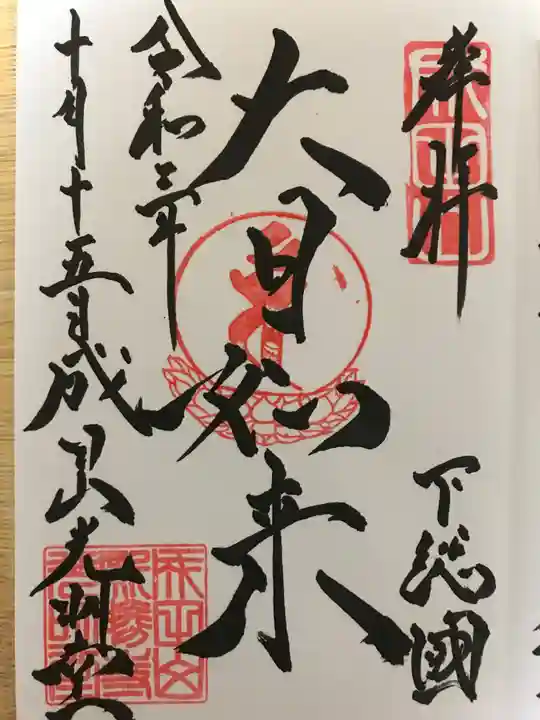 奉拝
下総國
大日如来
令和三年
十月十五日 成田山光明堂